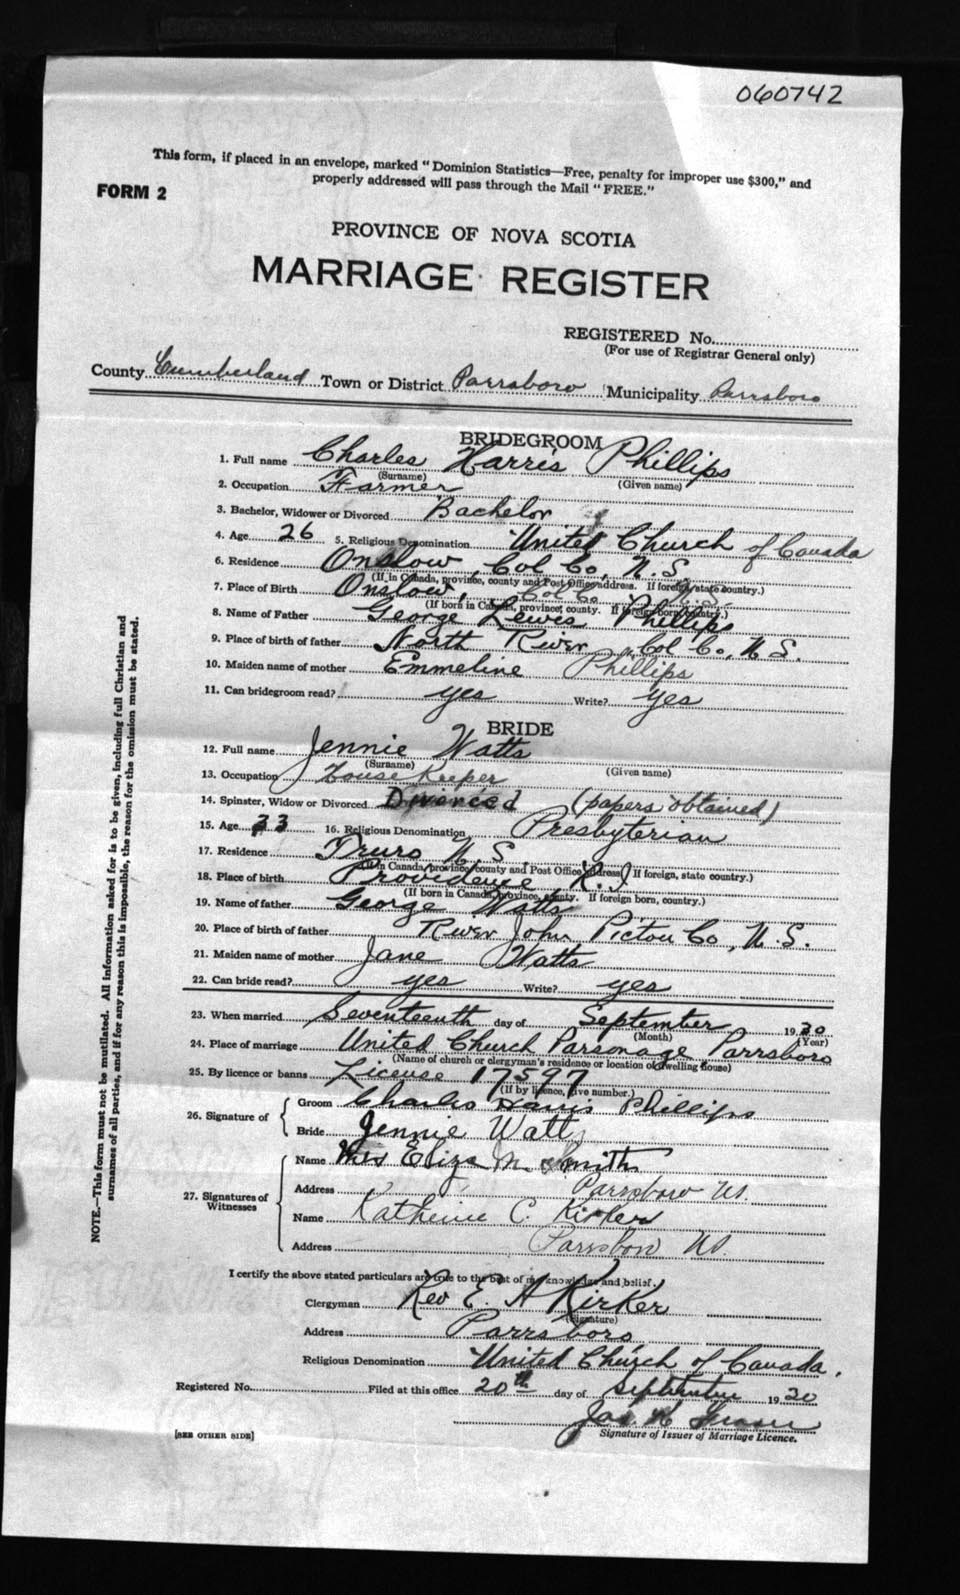 060742
This form, if placed in an envelope, marked "Dominion Statistics—Free, penalty for improper use $300," and
properly addressed will pass through the Mail "FREE."
FORM 2
PROVINCE OF NOVA SCOTIA
MARRIAGE REGISTER
REGISTERED No.
(For use of Registrar General only)
County Cumberland Town or District Parrsboro Municipality Parrsboro
BRIDEGROOM
1. Full name Charles Harris Phillips
(Surname) (Given name)
2. Occupation Farmer
3. Bachelor, Widower or Divorced Bachelor
4. Age 26 5. Religious Denomination United Church of Canada
6. Residence Onslow, Col Co, N.S.
(If in Canada, province, county and Post Office address. If foreign, state country.)
7. Place of Birth Onslow, Col Co N.S.
(If born in Canada, province, county. If foreign born, country.)
8. Name of Father George Lewis Phillips
9. Place of birth of father North River, Col Co, N.S.
10. Maiden name of mother Emmeline Phillips
11. Can bridegroom read? yes Write? yes
BRIDE
12. Full name Jennie Watts
(Surname) (Given name)
13. Occupation House Keeper
14. Spinster, Widow or Divorced Divorced (papers obtained)
15. Age 33 16. Religious Denomination Presbyterian
17. Residence Truro N.S.
(If in Canada, province, county and Post Office address. If foreign, state country.)
18. Place of birth Providence R.I
(If born in Canada, province, county. If foreign born, country.)
19. Name of father George Watts
20. Place of birth of father River John, Pictou Co, N.S.
21. Maiden name of mother Jane Watts
22. Can bride read? yes Write? yes
23. When married Seventeenth day of September 1930
(Month) (Year)
24. Place of marriage United Church Parsonage Parrsboro
(Name of church or clergyman's residence or location of dwelling house)
25. By licence or banns License 17597
(If by licence, give number.)
26. Signature of
Groom Charles Harris Phillips
Bride Jennie Watts
27. Signatures of Witnesses
Name Mrs Eliza M. Smith
Address Parrsboro NS.
Name Katherine C. Kirker
Address Parrsboro NS.
I certify the above stated particulars are true to the best of my knowledge and belief.
Clergyman Rev E. A Kirker
(Signature)
Address Parrsboro
Religious Denomination United Church of Canada.
Registered No. Filed at this office 20th day of September 1930
Jas
Signature of Issuer of Marriage Licence.
[SEE OTHER SIDE]
NOTE.—This form must not be mutilated. All information asked for is to be given, including full Christian and
surnames of all parties, and if for any reason this is impossible, the reason for the omission must be stated.